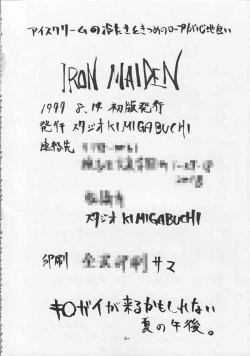 アイスクリームの冷たさときつめのロープが心地良い
IRON MAIDEN
1999 8.14 初版発行
発行 スタジオKIMIGABUCHI
連絡先
スタジオ KIMIGABUCHI
印刷 サマ
キ○ガイが来るかもしれない
夏の午後。